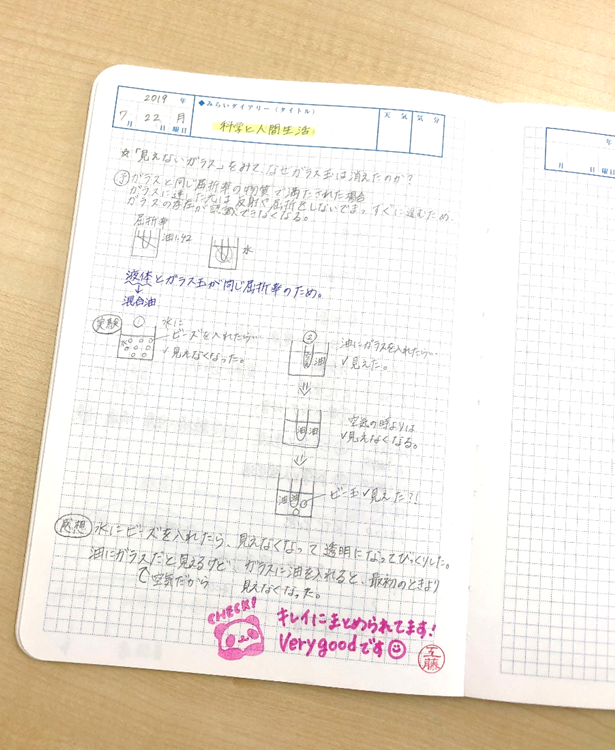 2019 年
7月 22日 月曜日
◆みらいダイアリー（タイトル）
天気 気分
科学と人間生活
☆「見えないガラス」をみて、なぜガラス玉は消えたのか?
予 ガラスと同じ屈折率の物質で満たされた場合
ガラスに達した光は反射や屈折をしないでまっすぐに進むため、
ガラスの存在が認識できなくなる。
屈折率
油1.42
水
液体とガラス玉が同じ屈折率のため。
↓
混合油
実験
水に
ビーズを入れたら…
✓見えなくなった。
②
油
油にガラスを入れたら…
✓見えた。
油 油
空気の時よりは
✓見えなくなる。
油 油
ビー玉✓見えた?!
感想 水にビーズを入れたら、見えなくなって透明になってびっくりした。
油にガラスだと見えるけど、ガラスに油を入れると、最初のときより
空気だから
見えなくなった。
CHECK!
キレイにまとめられてます!
Very goodです
工藤
年
月 日